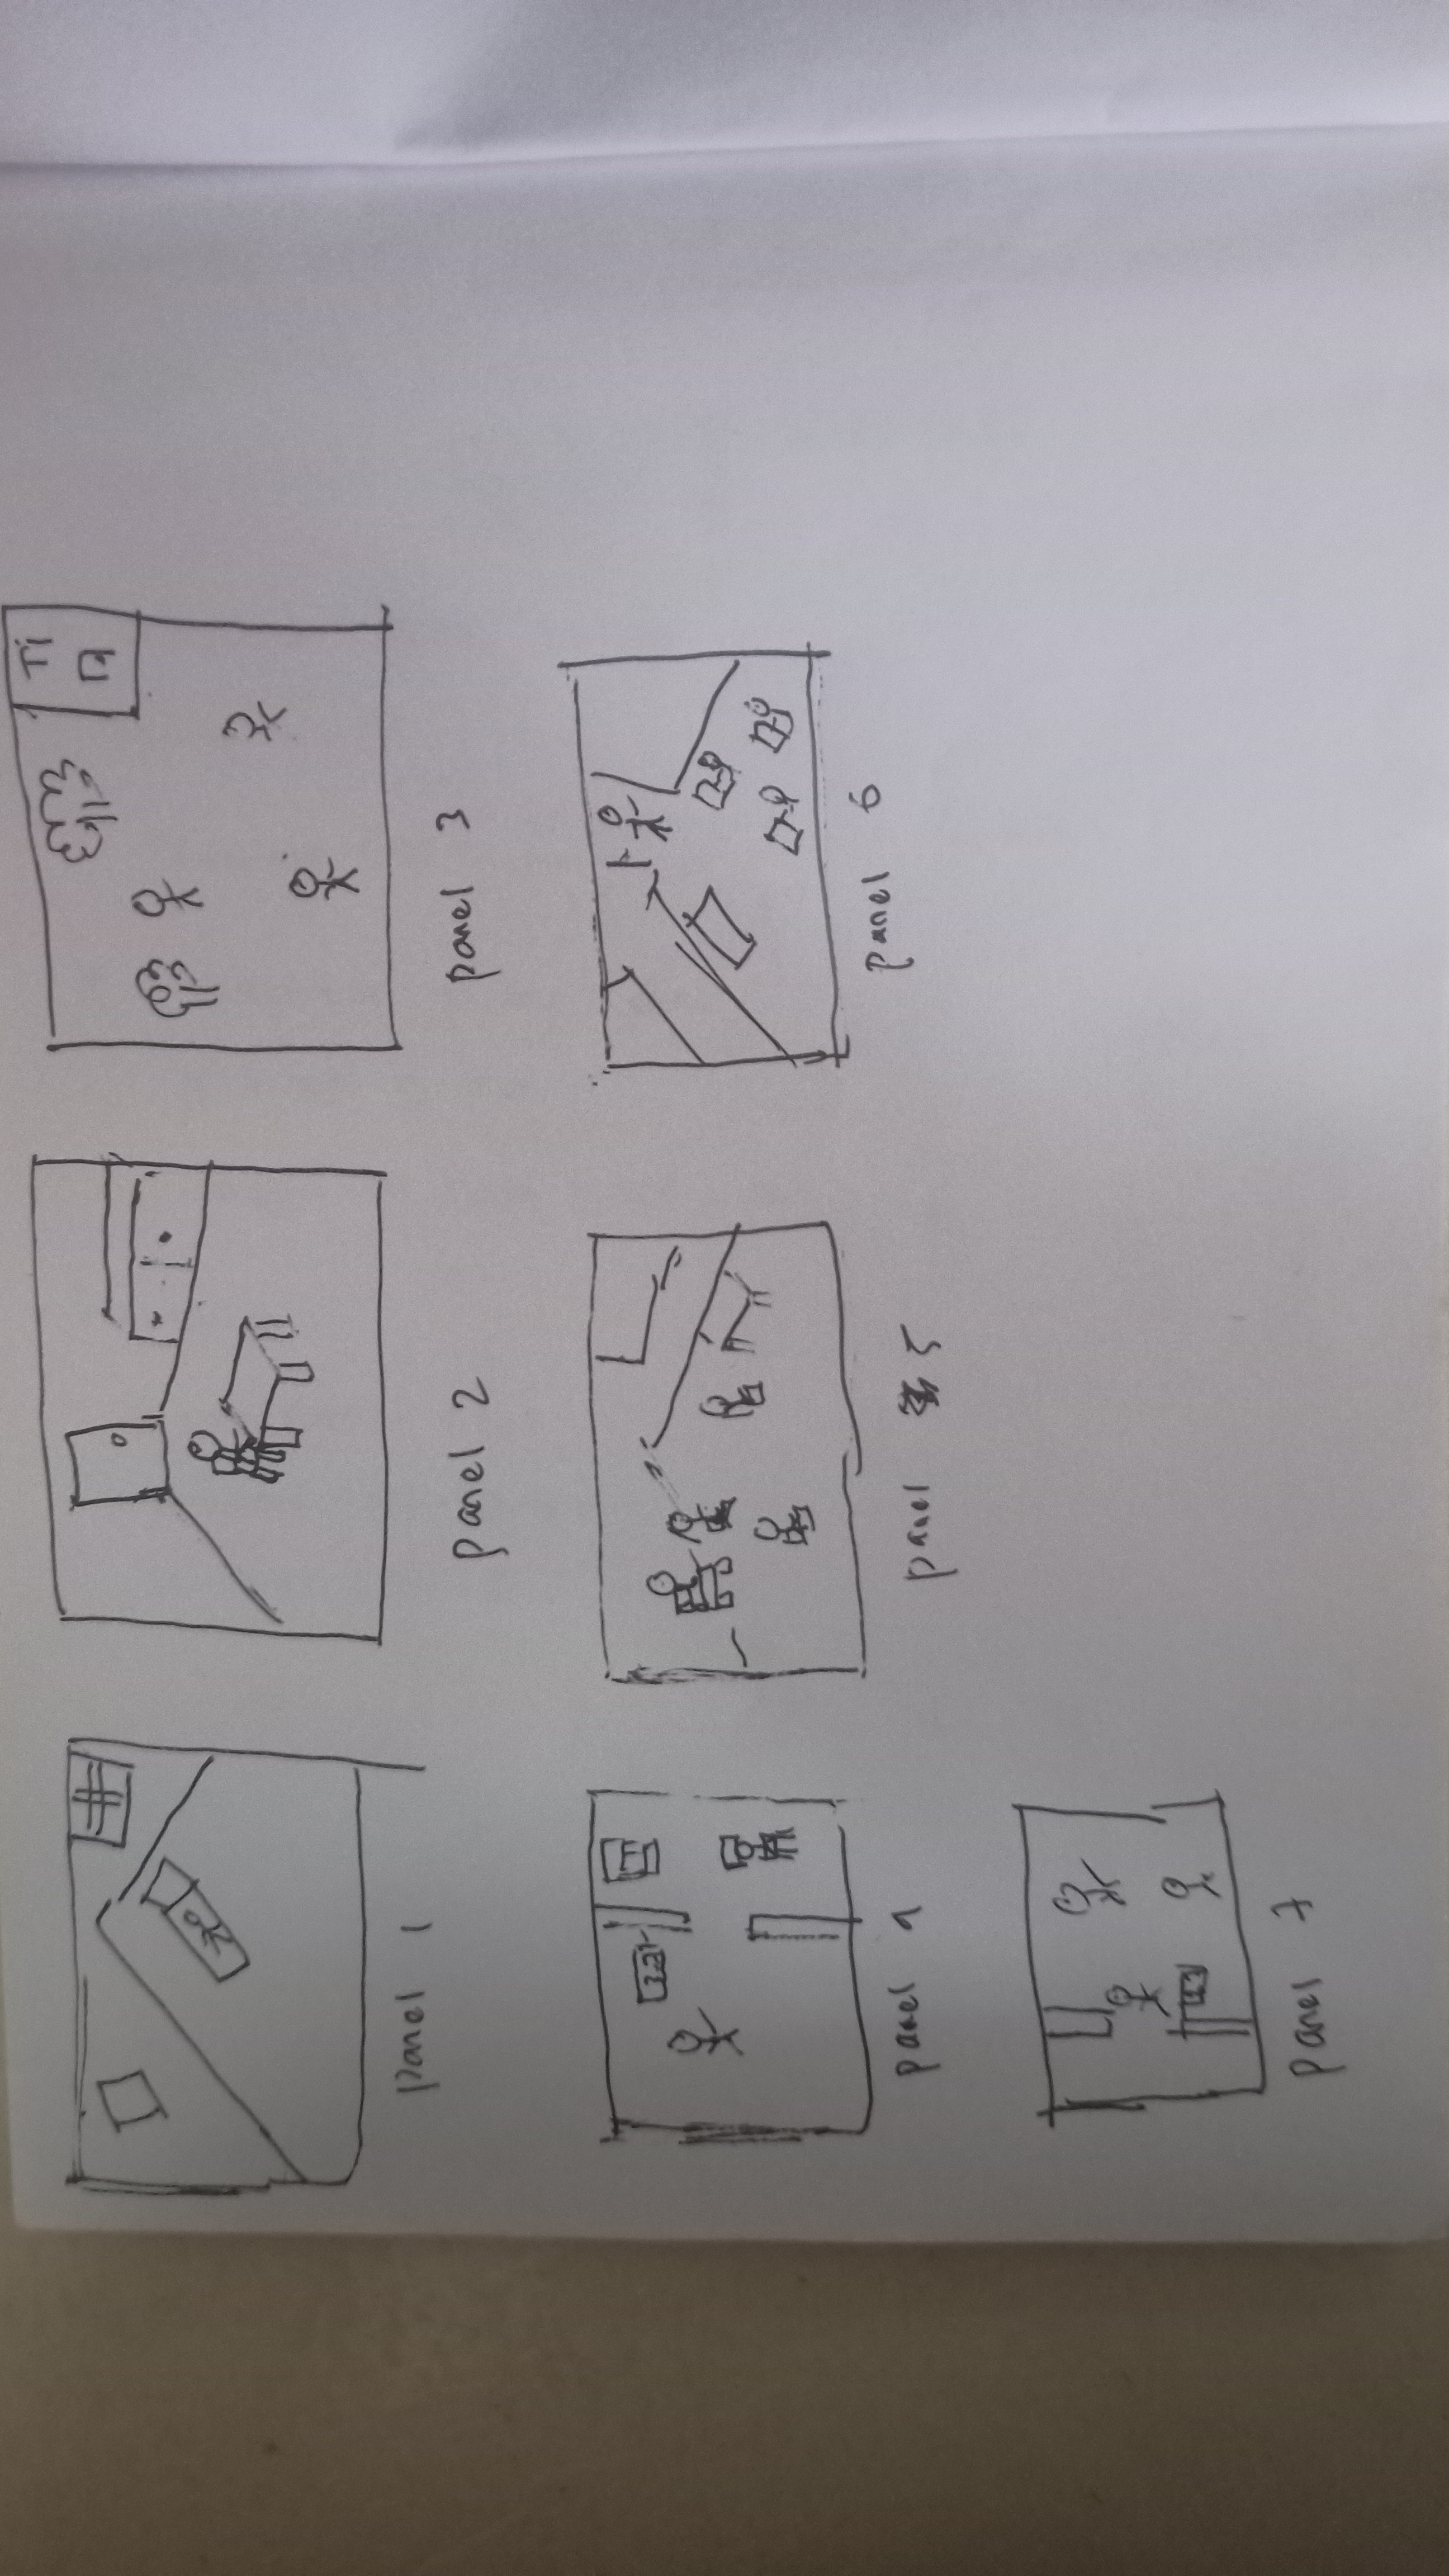 panel 1
panel 2
panel 3
panel
panel 5
panel 6
panel 7